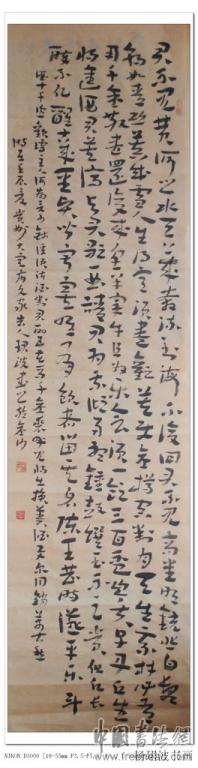 君不见黄河之水天上来奔流到海不复回君不见高堂明镜悲白发
朝如青丝暮成雪人生得意须尽欢莫使金樽空对月天生我材必有
用千金散尽还复来烹羊宰牛且为乐会须一饮三百杯岑夫子丹丘生
将进酒君莫停与君歌一曲请君为我倾耳听钟鼓馔玉不足贵但愿长
醉不愿醒古来圣贤皆寂寞惟有饮者留其名陈王昔时宴平乐斗
酒十千恣欢谑主人何为言少钱径须沽取对君酌五花马千金裘呼儿将出换美酒与尔同销万古愁
壬辰
中国书法网
NIKON D3000 [18-55mm F3.5-F5.